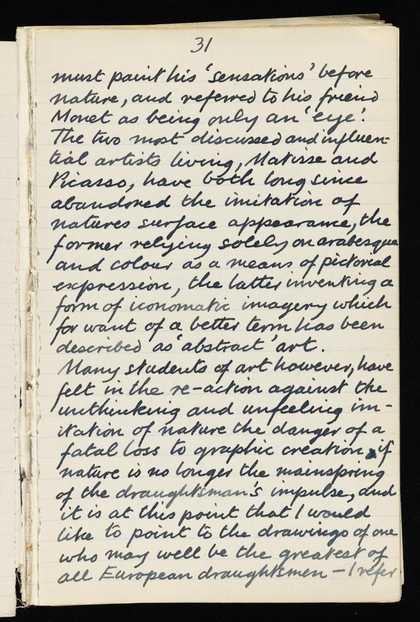 31
must paint his 'sensations' before
nature, and referred to his friend
Monet as being only an 'eye'.
The two most discussed and influen-
tial artists living, Matisse and
Picasso, have both long since
abandoned the imitation of
natures surface appearance, the
former relying solely on arabesque
and colour as a means of pictorial
expression, the latter inventing a
form of iconomatic imagery which
for want of a better term has been
described as 'abstract' art.
Many students of art however, have
felt in the re-action against the
unthinking and unfeeling im-
itation of nature the danger of a
fatal loss to graphic creation, if
nature is no longer the mainspring
of the draughtsman's impulse, and
it is at this point that I would
like to point to the drawings of one
who may well be the greatest of
all European draughtsmen – I refer